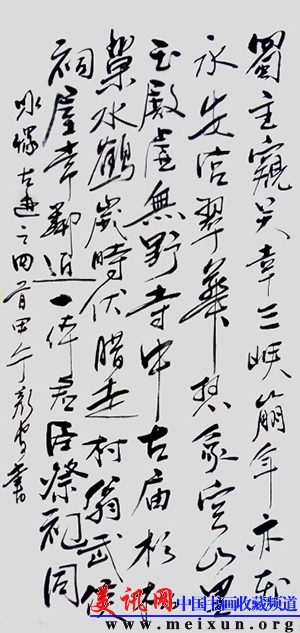 蜀主窺吴幸三峡崩年亦在
永安宫翠華想象空山里
玉殿虚無野寺中古庙杉松
巢水鶴歲時伏腊走村翁武侯
祠屋常鄰近一体君臣祭祀同
咏懷古迹之四首甲午書
美讯网 中国书画收藏频道
www.meixun.org